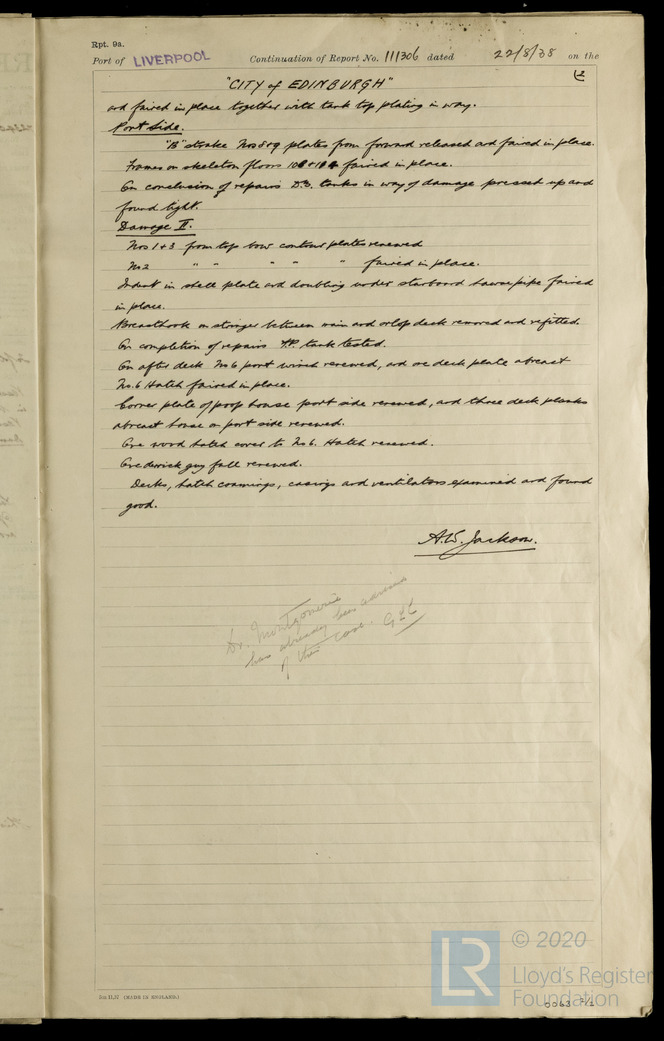 Rpt. 9a.
Port of LIVERPOOL Continuation of Report No. 111306 dated 22/8/38 on the
"CITY of EDINBURGH"
and faired in place together with tank top plating in way.
Port Side.
"B" strake Nos 8+9 plates from forward released and faired in place.
Frames on skeleton floors faired in place.
On conclusion of repairs D.B. tanks in way of damage pressed up and
found tight.
Damage II.
Nos 1+3 from top bow contour plates renewed
No 2 " " " " " faired in place.
Indent in shell plate and doubling under starboard hawse pipe faired
in place.
Breasthook on stringer between main and orlop deck removed and refitted.
On completion of repairs F.P. tank tested.
On after deck No 6 port winch renewed, and one deck plate abreast
No. 6 Hatch faired in place.
Corner plate of poop house port side renewed, and three deck planks
abreast house on port side renewed.
One wood hatch cover to No 6. Hatch renewed.
One derrick guy fall renewed.
Decks, hatch coamings, casings and ventilators examined and found
good.
A.W. Jackson.
Dr. Montgomerie
has already been advised
of this case.
© 2020
LR Lloyd's Register
Foundation
(MADE IN ENGLAND.)
0063 2/2